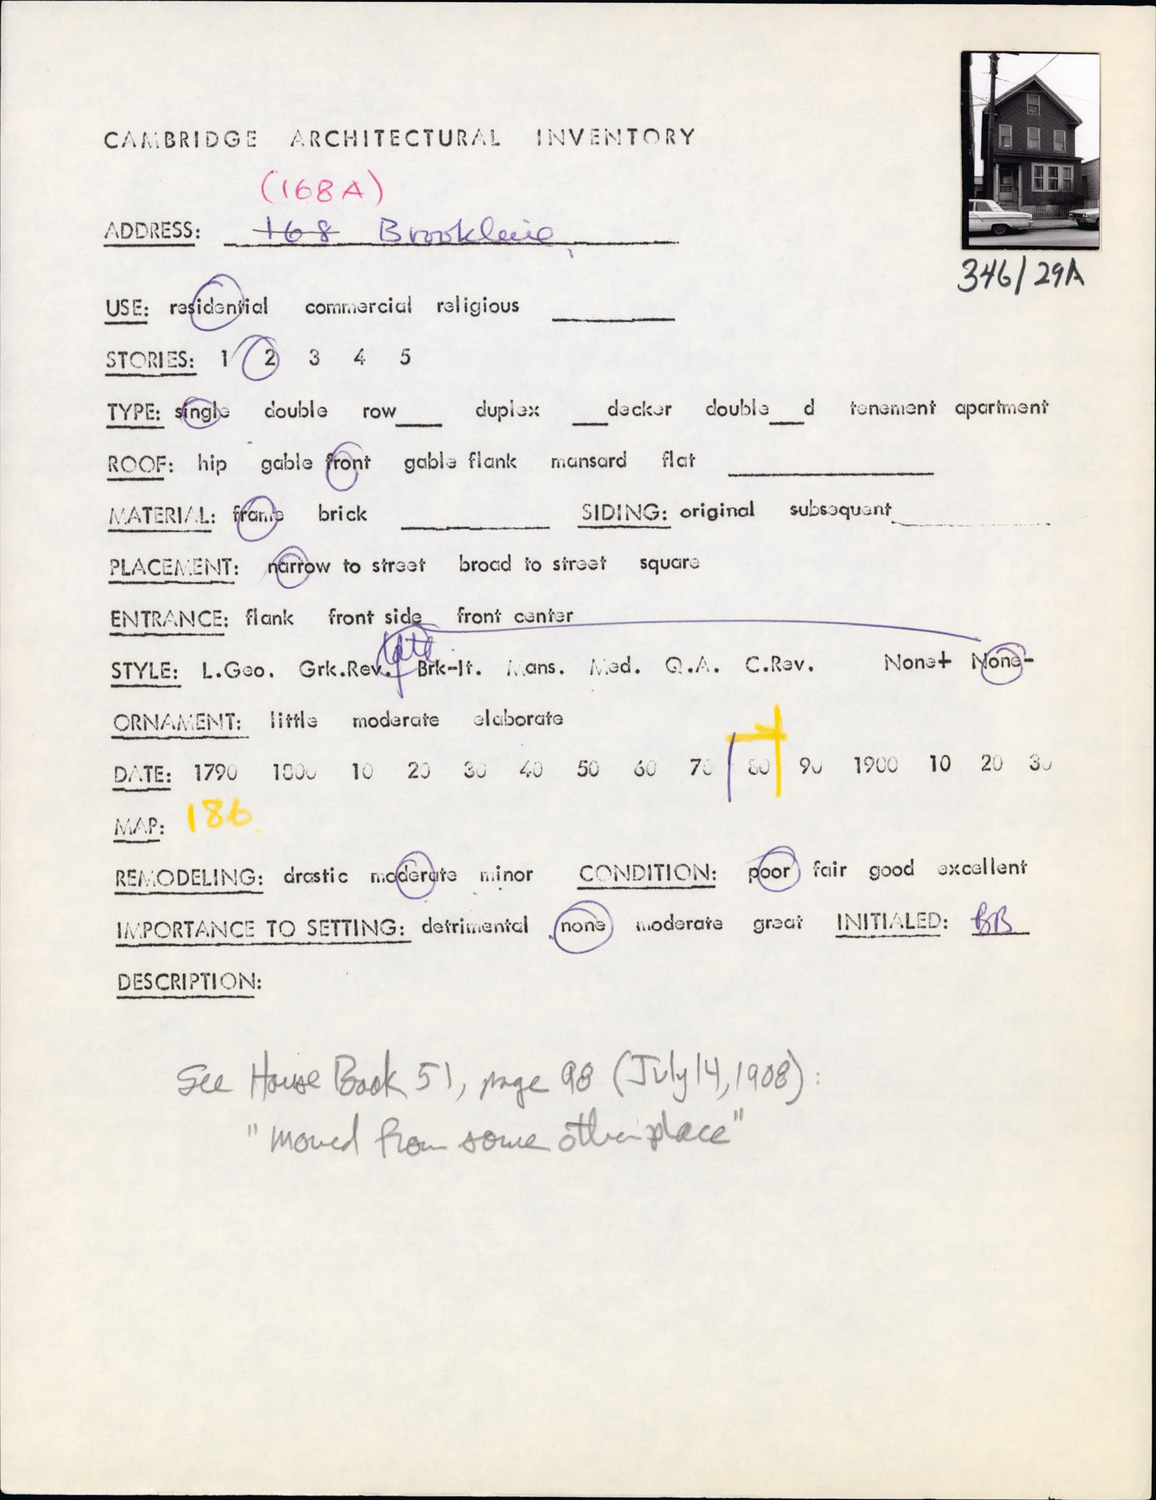 CAMBRIDGE ARCHITECTURAL INVENTORY
(168 A)
ADDRESS: 168 Brookline
346/29A
USE: residential commercial religious
STORIES: 1 2 3 4 5
TYPE: single double row___ duplex ___decker double___d tenement apartment
ROOF: hip gable front gable flank mansard flat
MATERIAL: frame brick SIDING: original subsequent
PLACEMENT: narrow to street broad to street square
ENTRANCE: flank front side front center
late
STYLE: L.Geo. Grk.Rev. Brk-It. Mans. Med. Q.A. C.Rev. None+ None-
ORNAMENT: little moderate elaborate
DATE: 1790 1800 10 20 30 40 50 60 70 80 90 1900 10 20 30
MAP: 186
REMODELING: drastic moderate minor CONDITION: poor fair good excellent
IMPORTANCE TO SETTING: detrimental none moderate great INITIALED: BB
DESCRIPTION:
See House Book 51, page 98 (July 14, 1908):
"moved from some other place"